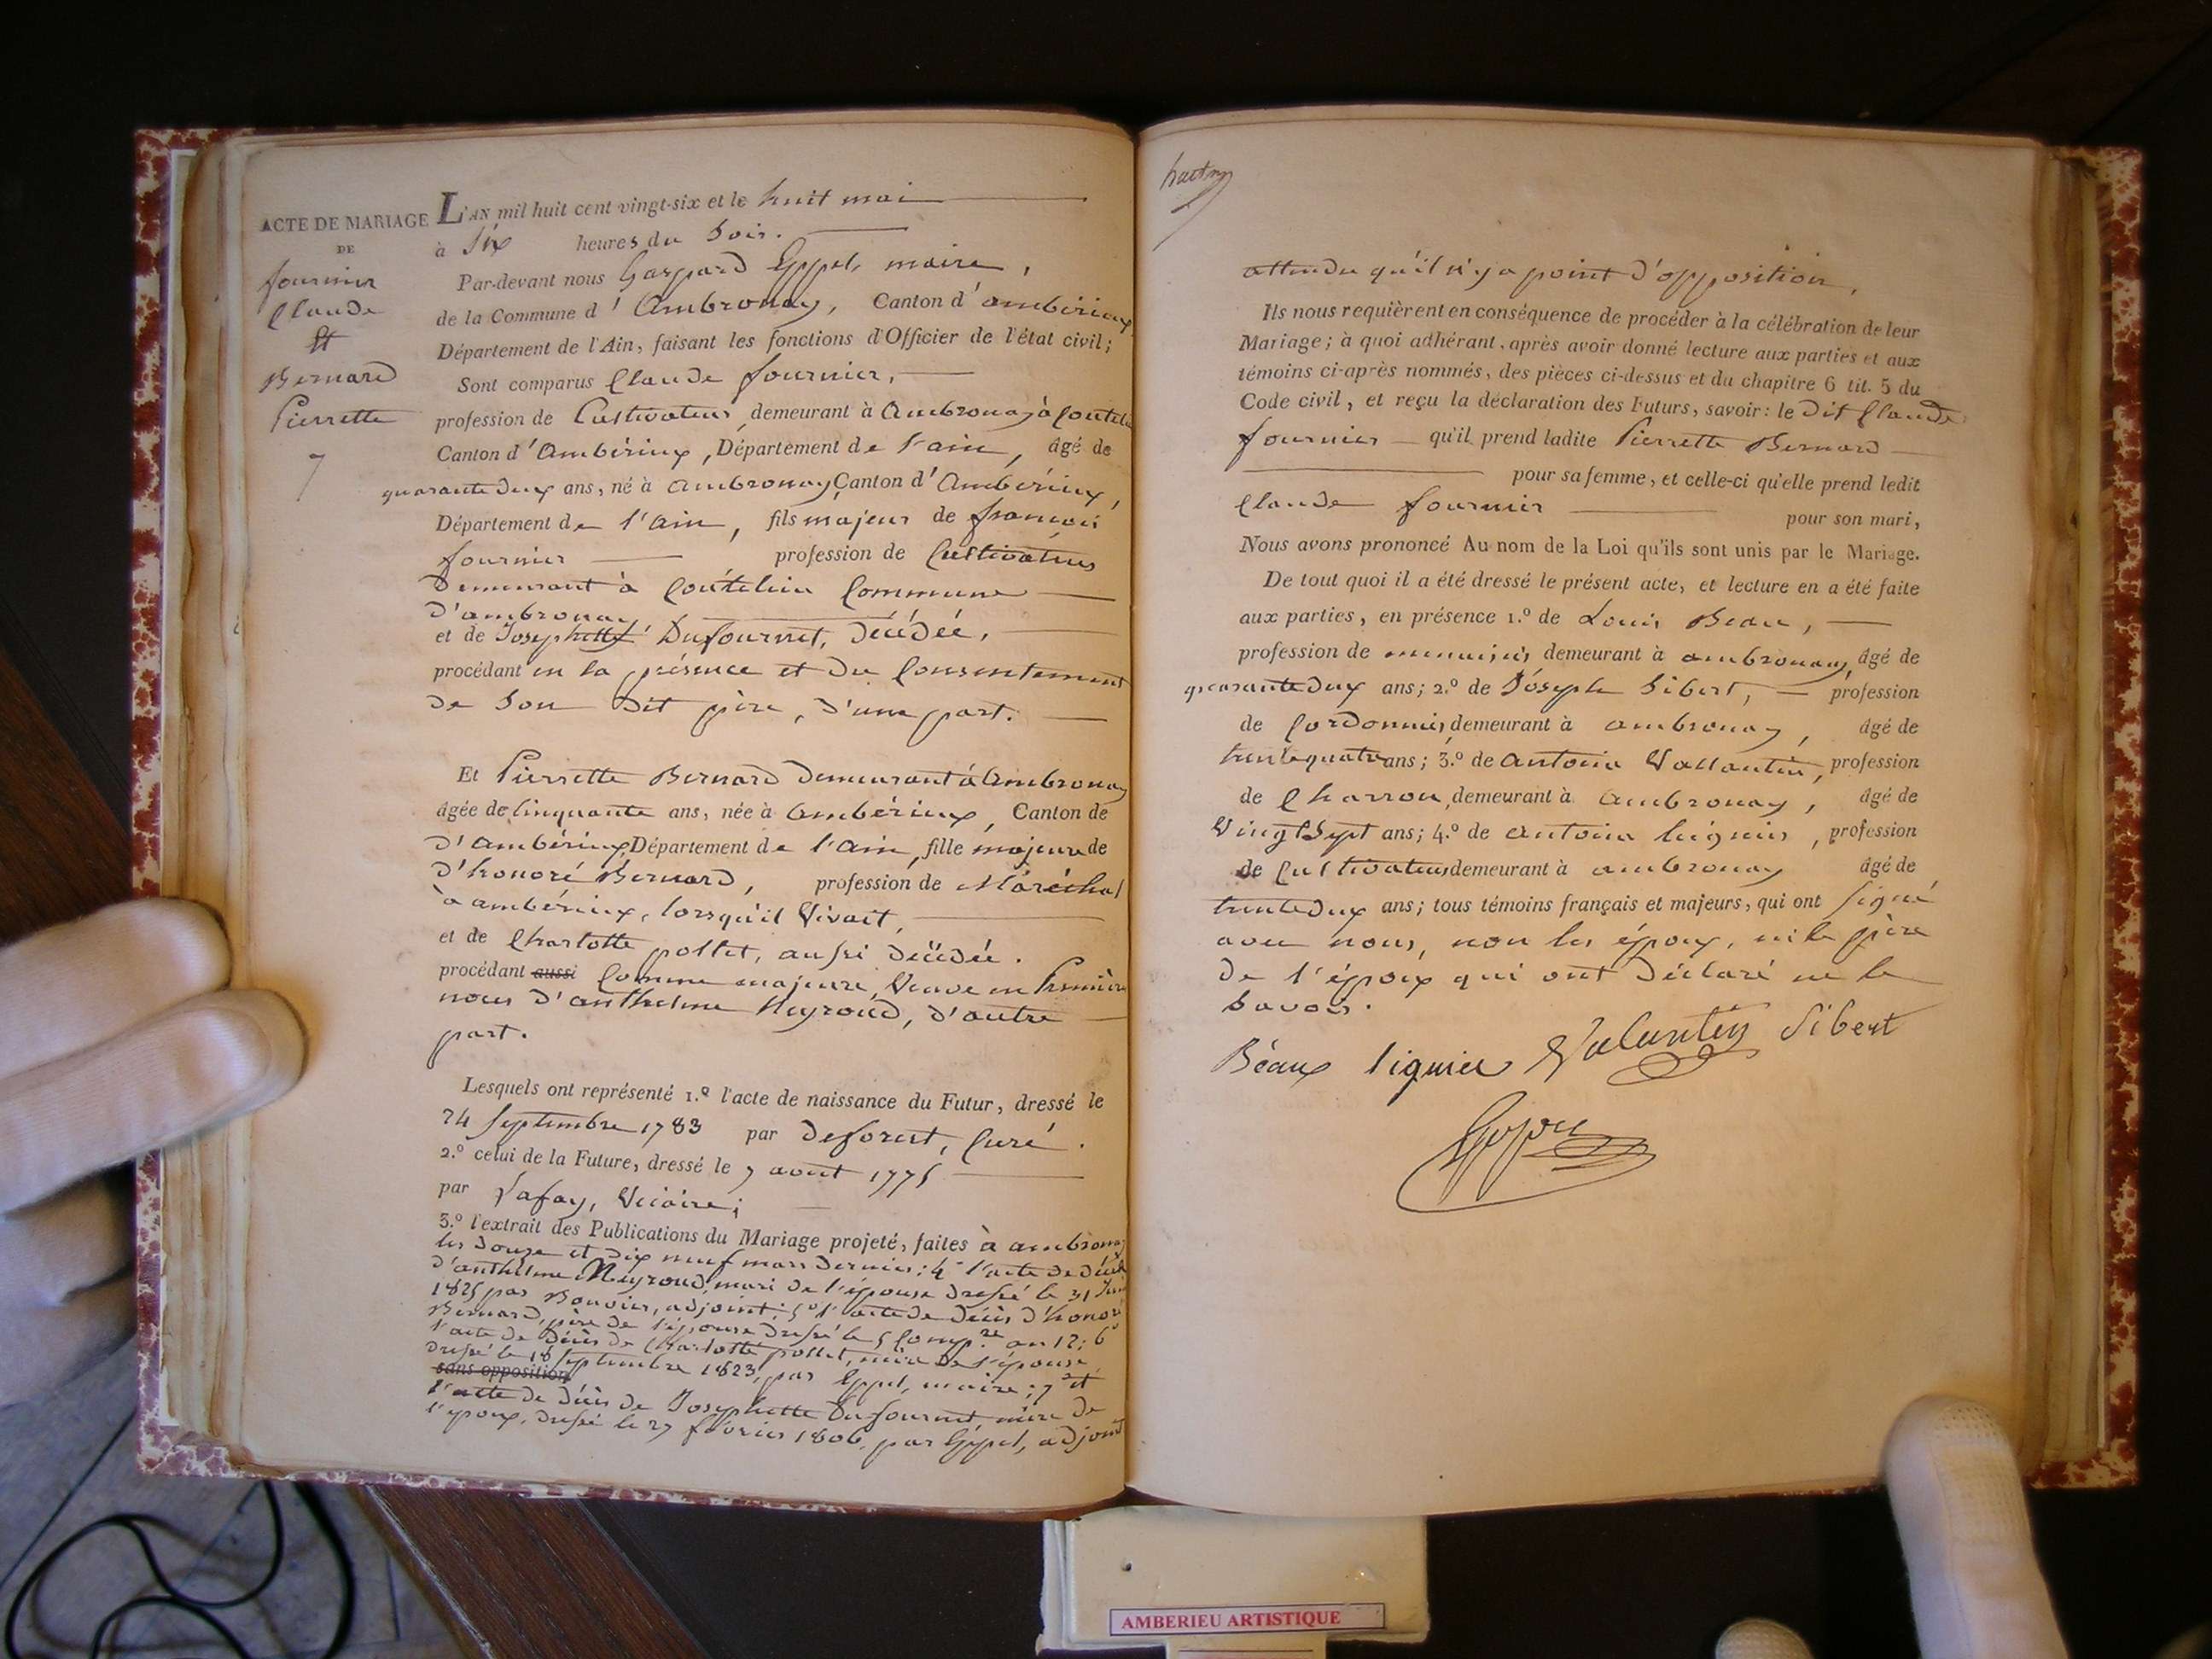 ACTE DE MARIAGE
DE
fournier
Claude
Et
Bernard
Pierrette
7
L'AN mil huit cent vingt-six et le huit mai
à Six heures du Soir.
Par-devant nous Gaspard Eppel, maire,
de la Commune d'Ambronay, Canton d'ambérieux
Département de l'Ain, faisant les fonctions d'Officier de l'état civil;
Sont comparus Claude fournier,
profession de Cultivateur demeurant à Ambronay à
Canton d'Ambérieux, Département de l'ain, âgé de
quarante deux ans, né à ambronay Canton d'Ambérieux,
Département de l'ain, fils majeur de françois
fournier profession de Cultivateur
Demeurant à Commune
D'ambronay
et de Josephette Dufournet, Décédée,
procédant en la présence et du Consentement
de Son Dit père, d'une part.
Et Pierrette Bernard Demeurant à Ambronay
âgée de Cinquante ans, née à Ambérieux, Canton de
D'ambérieux Département de l'ain, fille majeure de
D'honoré Bernard, profession de Maréchal
à ambérieux, lorsqu'il Vivait,
et de Charlotte pollet, aussi Décédée.
procédant aussi Comme majeure, Veuve en Premières
noces D'anthelme Neyroud, d'autre
part.
Lesquels ont représenté 1.º l'acte de naissance du Futur, dressé le
24 Septembre 1783 par Deforest, Curé.
2.º celui de la Future, dressé le 7 aout 1775
par Vicaire;
3.º l'extrait des Publications du Mariage projeté, faites à ambronay
les Douze et Dix neuf mars Dernier; 4º l'acte de Décès
d'anthelme Neyroud, mari de l'épouse Dressé le 31
1825 par Bouvier, adjoint; 5º l'acte de Décès D'honoré
Bernard, père de l'épouse Dressé le 5 Comp.re an 12; 6º
l'acte de Décès de Charlotte pollet, mère de l'épouse
Dressé le 18 Septembre 1823, par Eppel, maire; 7º et
sans opposition
l'acte de Décès de Josephette Dufournet, mère de
l'époux, Dressé le 27 février 1806, par Eppel, adjoint
attendu qu'il n'y a point d'opposition,
Ils nous requièrent en conséquence de procéder à la célébration de leur
Mariage; à quoi adhérant, après avoir donné lecture aux parties et aux
témoins ci-après nommés, des pièces ci-dessus et du chapitre 6 tit. 5 du
Code civil, et reçu la déclaration des Futurs, savoir: le Dit Claude
fournier qu'il prend ladite Pierrette Bernard
pour sa femme, et celle-ci qu'elle prend ledit
Claude fournier pour son mari,
Nous avons prononcé Au nom de la Loi qu'ils sont unis par le Mariage.
De tout quoi il a été dressé le présent acte, et lecture en a été faite
aux parties, en présence 1.º de Louis Beau,
profession de menuisier demeurant à ambronay, âgé de
quarante deux ans; 2.º de Joseph Sibert, profession
de Cordonnier demeurant à ambronay, âgé de
trente quatre ans; 3.º de Antoine Vallantin, profession
de Charron, demeurant à Ambronay, âgé de
Vingt Sept ans; 4.º de antoine liignier, profession
de Cultivateur demeurant à ambronay âgé de
trente deux ans; tous témoins français et majeurs, qui ont Signé
avec nous, non les époux, ni le père
de l'époux qui ont Déclaré ne le
Savoir.
Béaux liguier Valantin Sibert
AMBERIEU ARTISTIQUE